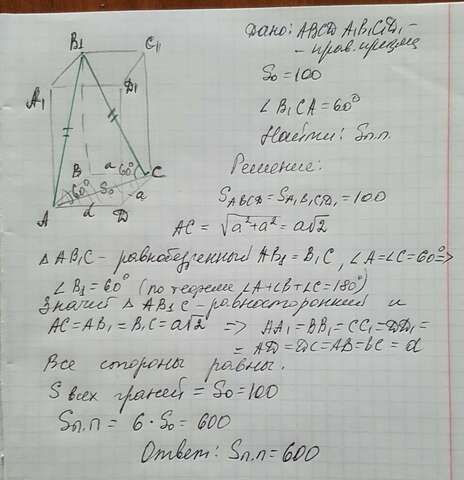 Дано: ABCD A1B1C1D1 –
– прав. призма
So = 100
∠ B1CA = 60°
Найти: Sп.п.
Решение:
SABCD = SA1B1C1D1 = 100
AC = √a²+a² = a√2
△ AB1C – равнобедренный AB1 = B1C, ∠A=∠C=60° =>
∠ B1 = 60° (по теореме ∠A+∠B+∠C=180°)
Значит △ AB1C – равносторонний и
AC = AB1 = B1C = a√2 => AA1 = BB1 = CC1 = DD1 =
= AD = DC = AB = BC = a
Все стороны равны.
S всех граней = So = 100
Sп.п = 6 · So = 600
Ответ: Sп.п = 600
B1
C1
A1
D1
B
a
60°
C
60°
So
a
A
a
D